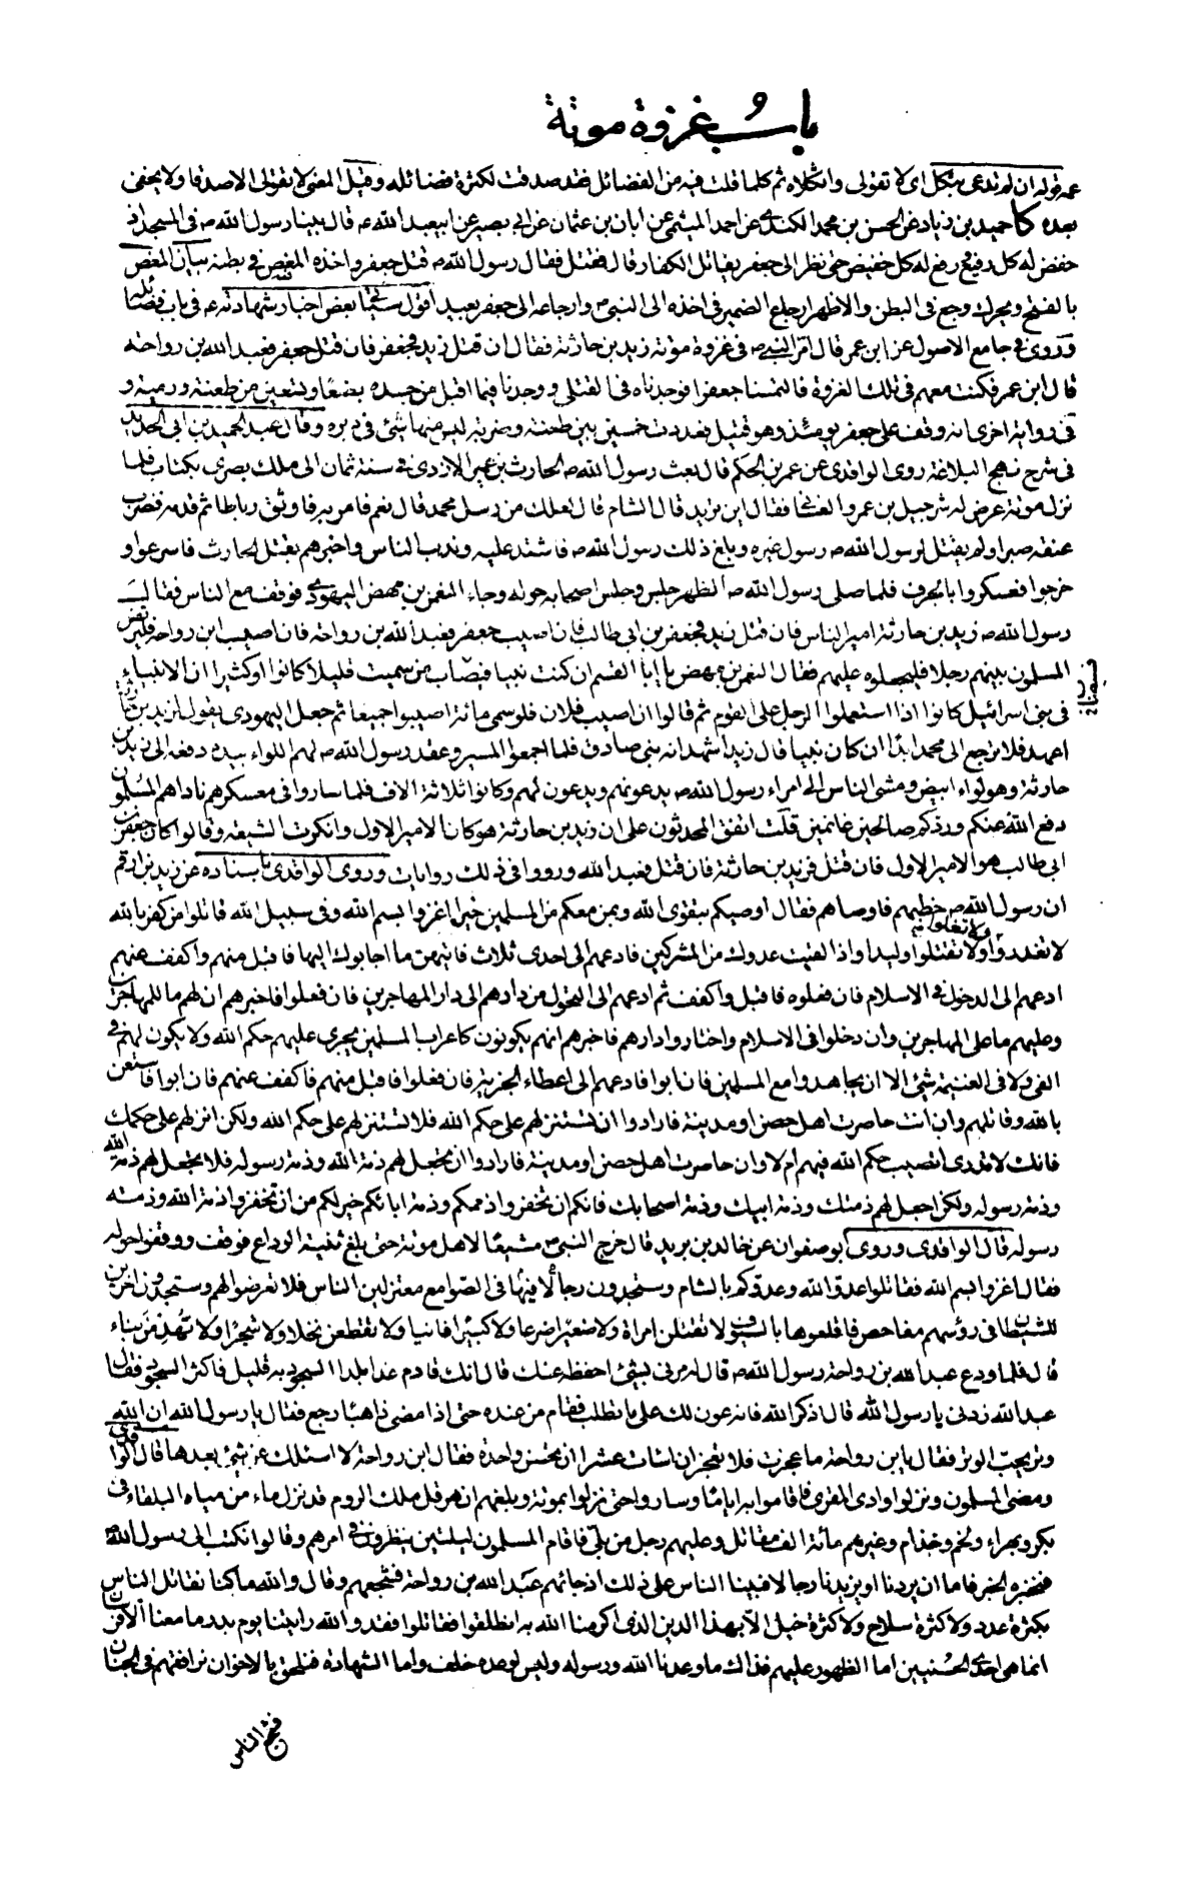 باب غزوة موتة
عمه قوله ان لم تدعى بثكل اى لا تقولى واثكلاه ثم كلما قلت فيه من الفضائل فقد صدقت لكثرة فضائله وقيل المعنى لا تقولى الا صدقا ولا يخفى
بعده كا حميد بن زياد عن الحسن بن محمد الكندى عن احمد الميثمى عن ابان بن عثمان عن ابى بصير عن ابيعبد الله ع قال بينا رسول الله ص فى المسجد اذ
خفض له كل رفيع ورفع له كل خفيض حتى نظر الى جعفر يقاتل الكفار قال فقتل فقال رسول الله ص قتل جعفر واخذه المغص فى بطنه بيان المغص
بالفتح ويحرك وجع فى البطن والاظهر ارجاع الضمير فى اخذه الى النبى ص وارجاعه الى جعفر بعيد اقول سيأتى بعض اخبار شهادته ع فى باب فضائله
وروى فى جامع الاصول عن ابن عمر قال امر النبى ص فى غزوة موتة زيد بن حارثة فقال ان قتل زيد فجعفر فان قتل جعفر فعبد الله بن رواحة
قال ابن عمر فكنت معهم فى تلك الغزوة فالتمسنا جعفرا فوجدناه فى القتلى ووجدنا فيما اقبل من جسده بضعا وتسعين من طعنة ورمية و
فى رواية اخرى انه وقف على جعفر يومئذ وهو قتيل فعددت خمسين بين طعنة وضربة ليس منها شئ فى دبره وقال عبد الحميد بن ابى الحديد
فى شرح نهج البلاغة روى الواقدى عن عمر بن الحكم قال بعث رسول الله ص الحارث بن عمير الازدى فى سنة ثمان الى ملك بصرى بكتاب فلما
نزل موتة عرض له شرحبيل بن عمرو الغسانى فقال اين تريد قال الشام قال لعلك من رسل محمد قال نعم فامر به فاوثق رباطا ثم قدمه فضرب
عنقه صبرا ولم يقتل لرسول الله ص رسول غيره وبلغ ذلك رسول الله ص فاشتد عليه وندب الناس واخبرهم بقتل الحارث فاسرعوا و
خرجوا فعسكروا بالجرف فلما صلى رسول الله ص الظهر جلس وجلس اصحابه حوله وجاء النعمن بن مهض اليهودى فوقف مع الناس فقال
رسول الله ص زيد بن حارثة امير الناس فان قتل زيد فجعفر بن ابى طالب فان اصيب جعفر فعبد الله بن رواحة فان اصيب ابن رواحة فليرتض
المسلمون بينهم رجلا فليجعلوه عليهم فقال النعمن بن مهض يا ابا القسم ان كنت نبيا فيصاب من سميت قليلا كانوا او كثيرا ان الانبياء
فى بنى اسرائيل كانوا اذا استعملوا الرجل على القوم ثم قالوا ان اصيب فلان فلو سمى مائة اصيبوا جميعا ثم جعل اليهودى يقول لزيد بن حارثة
اعهد فلا ترجع الى محمد ابدا ان كان نبيا قال زيد اشهد انه نبى صادق فلما اجمعوا المسير وعقد رسول الله ص لهم اللواء بيده دفعه الى زيد بن
حارثة وهو لواء ابيض ومشى الناس الى امراء رسول الله ص يدعونهم ويدعون لهم وكانوا ثلاثة الاف فلما ساروا فى معسكرهم ناداهم المسلمون
دفع الله عنكم وردكم صالحين غانمين قلت اتفق المحدثون على ان زيد بن حارثة هو كان الامير الاول وانكرت الشيعة وقالوا كان جعفر بن
ابى طالب هو الامير الاول فان قتل فزيد بن حارثة فان قتل فعبد الله ورووا فى ذلك روايات وروى الواقدى باسناده عن زيد بن ارقم
ان رسول الله ص خطبهم فاوصاهم فقال اوصيكم بتقوى الله وبمن معكم من المسلمين خيرا اغزوا بسم الله وفى سبيل الله قاتلوا من كفر بالله
لا تغدروا ولا تغلوا ولا تقتلوا وليدا واذا لقيت عدوك من المشركين فادعهم الى احدى ثلاث فايتهن ما اجابوك اليها فاقبل منهم واكفف عنهم
ادعهم الى الدخول فى الاسلام فان فعلوه فاقبل واكفف ثم ادعهم الى التحول من دارهم الى دار المهاجرين فان فعلوا فاخبرهم ان لهم ما للمهاجرين
وعليهم ما على المهاجرين وان دخلوا فى الاسلام واختاروا دارهم فاخبرهم انهم يكونون كاعراب المسلمين يجرى عليهم حكم الله ولا يكون لهم فى
الفئ ولا فى الغنيمة شئ الا ان يجاهدوا مع المسلمين فان ابوا فادعهم الى اعطاء الجزية فان فعلوا فاقبل منهم فاكفف عنهم فان ابوا فاستعن
بالله وقاتلهم وان انت حاصرت اهل حصن او مدينة فارادوا ان تستنزلهم على حكم الله فلا تستنزلهم على حكم الله ولكن انزلهم على حكمك
فانك لا تدرى اتصيب حكم الله فيهم ام لا وان حاصرت اهل حصن او مدينة فارادوا ان تجعل لهم ذمة الله وذمة رسوله فلا تجعل لهم ذمة الله
وذمة رسوله ولكن اجعل لهم ذمتك وذمة ابيك وذمة اصحابك فانكم ان تخفروا ذممكم وذمة ابائكم خير لكم من ان تخفروا ذمة الله وذمة
رسوله قال الواقدى وروى ابو صفوان عن خالد بن يزيد قال خرج النبى ص مشيعا لاهل موتة حتى بلغ ثنية الوداع فوقف ووقفوا حوله
فقال اغزوا بسم الله فقاتلوا عدو الله وعدوكم بالشام وستجدون رجالا فيها فى الصوامع معتزلين الناس فلا تعرضوا لهم وستجدون اخرين
للشيطان فى رؤسهم مفاحص فاقلعوها بالسيوف ولا تقتلن امراة ولا صغيرا ضرعا ولا كبيرا فانيا ولا تقطعن نخلا ولا شجرا ولا تهدمن بناء
قال فلما ودع عبد الله بن رواحة رسول الله ص قال له مرنى بشئ احفظه عنك قال انك قادم غدا بلدا السجود به قليل فاكثر السجود فقال
عبد الله زدنى يا رسول الله قال اذكر الله فانه عون لك على ما تطلب فقام من عنده حتى اذا مضى ذاهبا رجع فقال يا رسول الله ان الله
وتر يحب الوتر فقال يا ابن رواحة ما عجزت فلا تعجزن ان اسات عشرا ان تحسن واحدة فقال ابن رواحة لا اسئلك عن شئ بعدها قال الواقدى
ومضى المسلمون ونزلوا وادى القرى فاقاموا به اياما وساروا حتى نزلوا بموتة وبلغهم ان هرقل ملك الروم قد نزل ماء من مياه البلقاء فى
بكر وبهراء ولخم وجذام وغيرهم مائة الف مقاتل وعليهم رجل من بلى فاقام المسلمون ليلتين ينظرون فى امرهم وقالوا نكتب الى رسول الله ص
فنخبره الخبر فاما ان يردنا او يزيدنا رجالا فبينا الناس على ذلك اذ جائهم عبد الله بن رواحة فشجعهم وقال والله ما كنا نقاتل الناس
بكثرة عدد ولا كثرة سلاح ولا كثرة خيل الا بهذا الدين الذى اكرمنا الله به انطلقوا فقاتلوا فقد والله راينا يوم بدر ما معنا الا فرسان
انما هى احدى الحسنيين اما الظهور عليهم فذاك ما وعدنا الله ورسوله وليس لوعده خلف واما الشهادة فنلحق بالاخوان نرافقهم فى الجنان
فشجع الناس